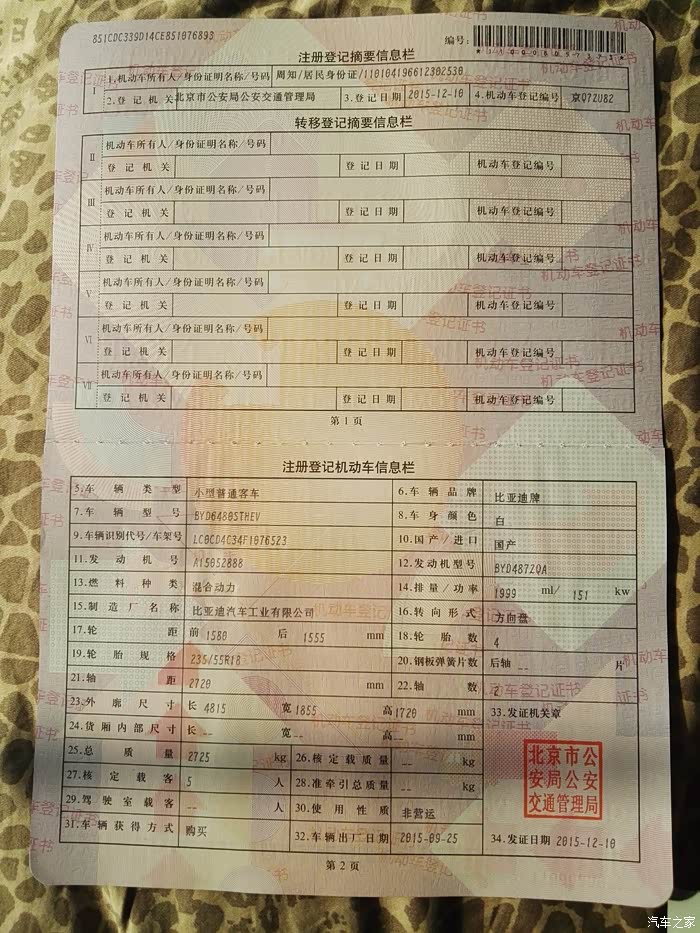 851CDC339D14CE851076893
编号:
注册登记摘要信息栏
I 1.机动车所有人/身份证明名称/号码 周知/居民身份证/110104196612302530
2.登记机关 北京市公安局公安交通管理局 3.登记日期 2015-12-10 4.机动车登记编号 京Q7ZU82
转移登记摘要信息栏
II 机动车所有人/身份证明名称/号码
登记机关 登记日期 机动车登记编号
III 机动车所有人/身份证明名称/号码
登记机关 登记日期 机动车登记编号
IV 机动车所有人/身份证明名称/号码
登记机关 登记日期 机动车登记编号
V 机动车所有人/身份证明名称/号码
登记机关 登记日期 机动车登记编号
VI 机动车所有人/身份证明名称/号码
登记机关 登记日期 机动车登记编号
VII 机动车所有人/身份证明名称/号码
登记机关 登记日期 机动车登记编号
第1页
注册登记机动车信息栏
5.车辆类型 小型普通客车 6.车辆品牌 比亚迪牌
7.车辆型号 BYD6480STHEV 8.车身颜色 白
9.车辆识别代号/车架号 LC0CD4C34F1076523 10.国产/进口 国产
11.发动机号 A15052888 12.发动机型号 BYD487ZQA
13.燃料种类 混合动力 14.排量/功率 1999 ml/ 151 kw
15.制造厂名称 比亚迪汽车工业有限公司 16.转向形式 方向盘
17.轮距 前 1580 后 1555 mm 18.轮胎数 4
19.轮胎规格 235/55R18 20.钢板弹簧片数 后轴 -- 片
21.轴距 2720 mm 22.轴数 2
23.外廓尺寸 长 4815 宽 1855 高 1720 mm 33.发证机关章
24.货厢内部尺寸 长 -- 宽 -- 高 -- mm
25.总质量 2725 kg 26.核定载质量 -- kg
27.核定载客 5 人 28.准牵引总质量 -- kg
29.驾驶室载客 -- 人 30.使用性质 非营运
31.车辆获得方式 购买 32.车辆出厂日期 2015-09-25 34.发证日期 2015-12-10
北京市公
安局公安
交通管理局
第2页
汽车之家